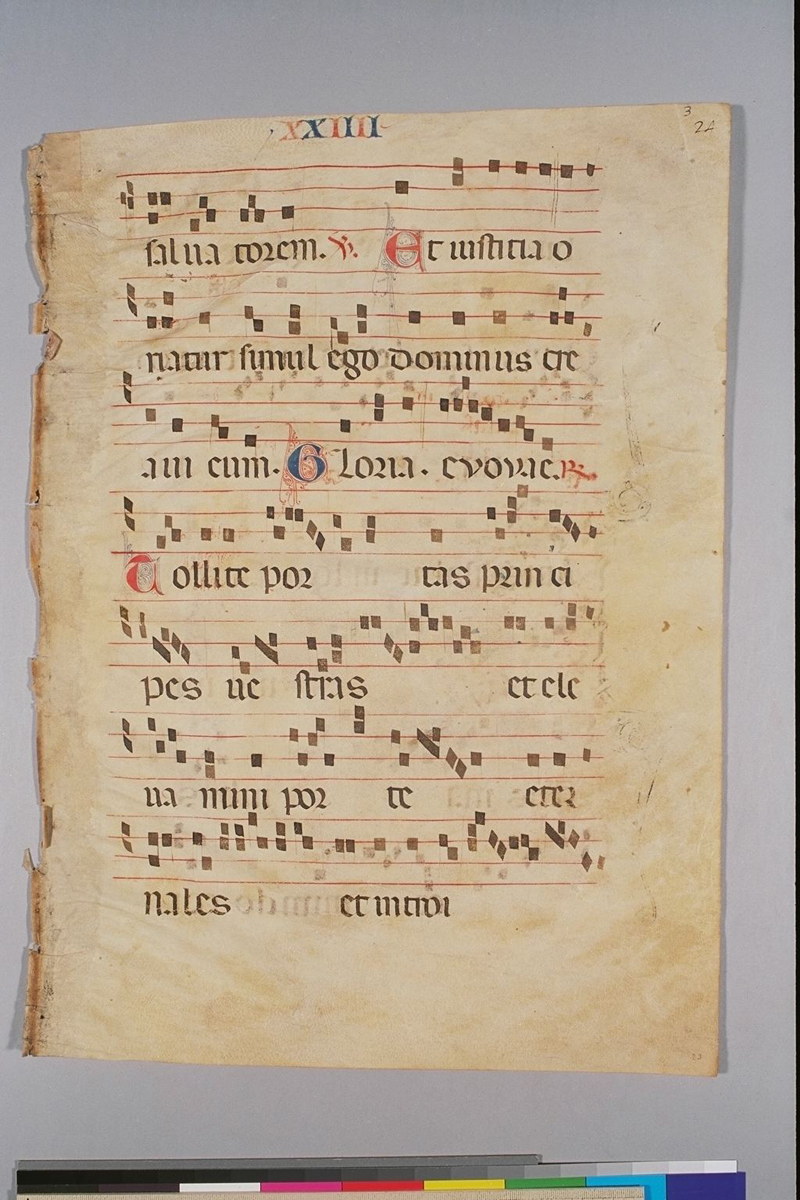 XXIIII
3
24
salua torem. V. Et iusticia o
riatur simul ego dominus cre
aui eum. Gloria. evovae. R.
Tollite por tas princi
pes ue stras et ele
ua mini por te eter
nales et introi